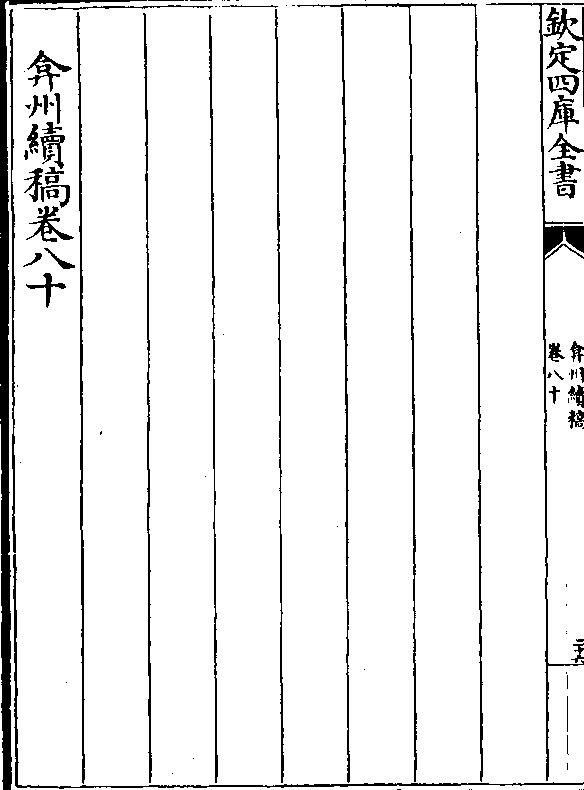 欽定四庫全書
弇州續稿
卷八十
二十六
弇州續稿卷八十